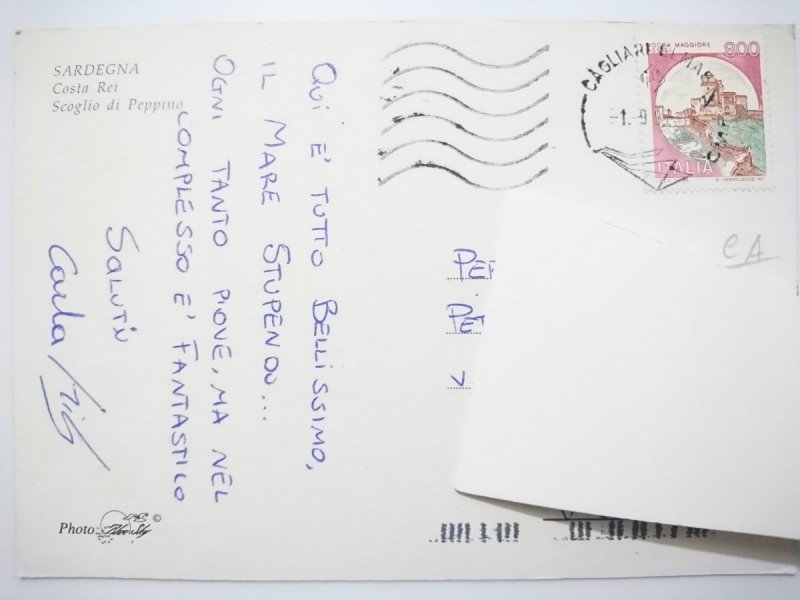 SARDEGNA
Costa Rei
Scoglio di Peppino
QUI E' TUTTO BELLISSIMO,
IL MARE STUPENDO...
OGNI TANTO PIOVE, MA NEL
COMPLESSO E' FANTASTICO
SALUTI
Carla
Photo: ©
ROCCA MAGGIORE 800
ITALIA
CAGLIARI
-1.9
CA